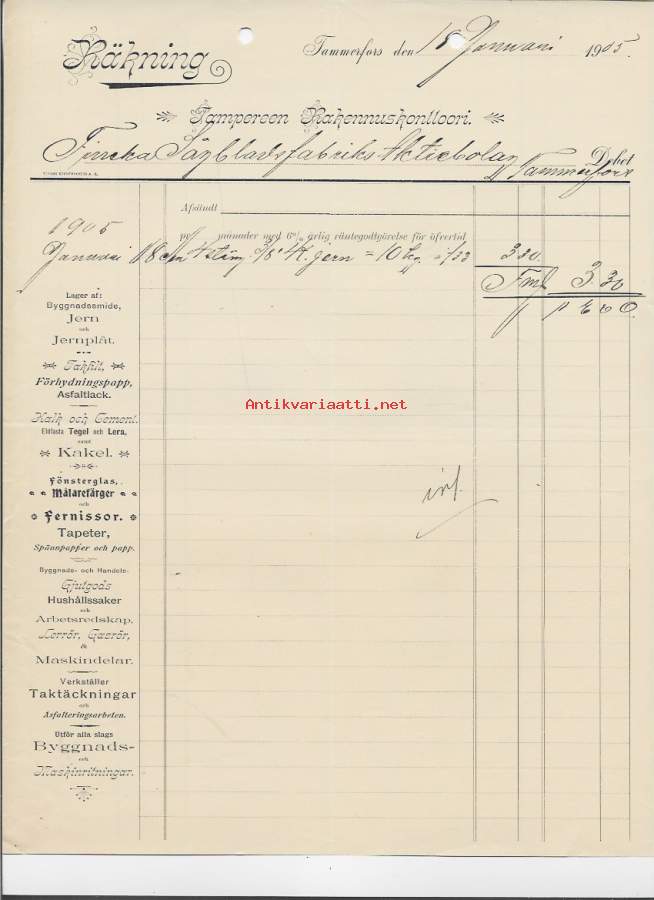 Räkning
Tammerfors den 18 Januari 1905.
Tampereen Rakennuskonttoori.
Finska Sågbladsfabriks Aktiebolag Debet
Tammerfors
Afsändt
månader med 6% årlig räntegodtgörelse för öfvertid
1905
Januari 18 4 stång 3/8" jern = 10 kg 3 30.
Fmk 3.30
Lager af:
Byggnadssmide,
Jern
och
Jernplåt.
Takfilt,
Förhydningspapp,
Asfaltlack.
Kalk och Cement.
Eldfasta Tegel och Lera,
samt
Kakel.
Antikvariaatti.net
Fönsterglas,
Målarefärger
och
Fernissor.
Tapeter,
Spännpapper och papp.
Byggnads- och Handels-
Gjutgods
Hushållssaker
och
Arbetsredskap,
Lerrör, Gasrör,
&
Maskindelar.
Verkställer
Taktäckningar
och
Asfalteringsarbeten.
Utför alla slags
Byggnads-
och
Maskinritningar.